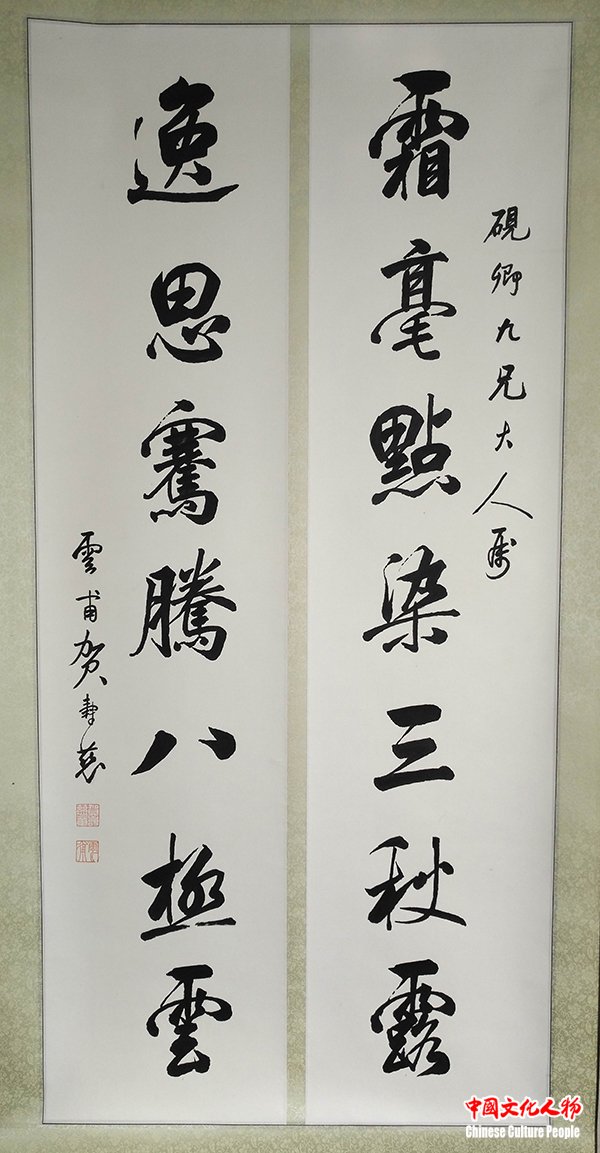 硯卿九兄大人属
霜毫點染三秋露
逸思騫騰八極雲
雲甫賀壽慈
中國文化人物
Chinese Culture People